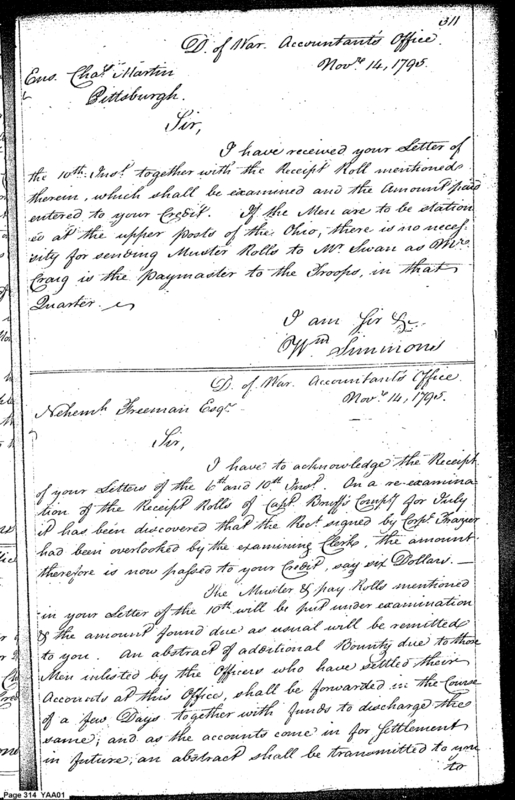 311
D. of War. Accountant's Office
Nov.r 14, 1795.
Ens. Cha.s Martin
Pittsburgh.
Sir,
I have received your Letter of
the 10th Inst. together with the Receipt Roll mentioned
therein, which shall be examined and the Amount paid
entered to your Credit. If the Men are to be station
ed at the upper posts of the Ohio, there is no neces
sity for sending Muster Rolls to Mr. Swan as
Craig is the paymaster to the Troops, in that
Quarter.
I am Sir &c.
Wm Simmons
D. of War. Accountant's Office
Nov.r 14, 1795.
Nehemh. Freeman Esqr.
Sir,
I have to acknowledge the Receipt
of your Letters of the 6th and 10th Inst. On a re-examina
tion of the Receipt Rolls of Capt. Bruff's Compy. for July
it has been discovered that the Rect. signed by Corpl. Frazier
had been overlooked by the examining Clerks, the amount
therefore is now passed to your Credit, say six Dollars. —
The Muster & pay Rolls mentioned
in your Letter of the 10th will be put under examination
& the amount found due as usual will be remitted
to you. An abstract of additional Bounty due to those
Men inlisted by the Officers who have settled their
Accounts at this Office, shall be forwarded in the Course
of a few Days together with funds to discharge the
same; and as the accounts come in for Settlement
in future, an abstract shall be transmitted to you
to
Page 314 YAA01